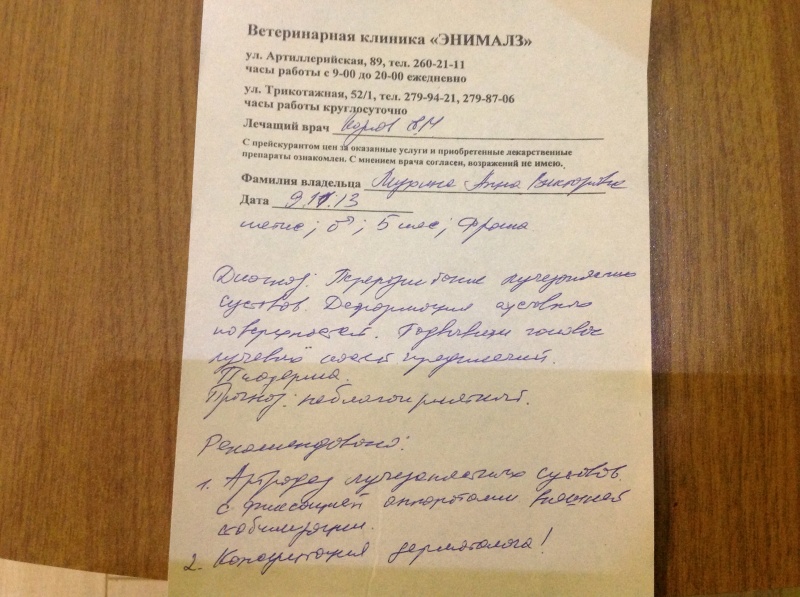 Ветеринарная клиника «ЭНИМАЛЗ»
ул. Артиллерийская, 89, тел. 260-21-11
часы работы с 9-00 до 20-00 ежедневно
ул. Трикотажная, 52/1, тел. 279-94-21, 279-87-06
часы работы круглосуточно
Лечащий врач
С прейскурантом цен за оказанные услуги и приобретенные лекарственные
препараты ознакомлен. С мнением врача согласен, возражений не имею.
Фамилия владельца Анна Викторовна
Дата 9.11.13
метис; ♂; 5 мес;
Диагноз: Переразгибание лучезапястных
суставов. Деформация суставных
поверхностей. Подвывихи головок
лучевых костей предплечий.
Пиодермия.
Прогноз: неблагоприятный.
Рекомендовано:
1. Артродез лучезапястных суставов
с фиксацией аппаратами внешней
стабилизации.
2. Консультация дерматолога!